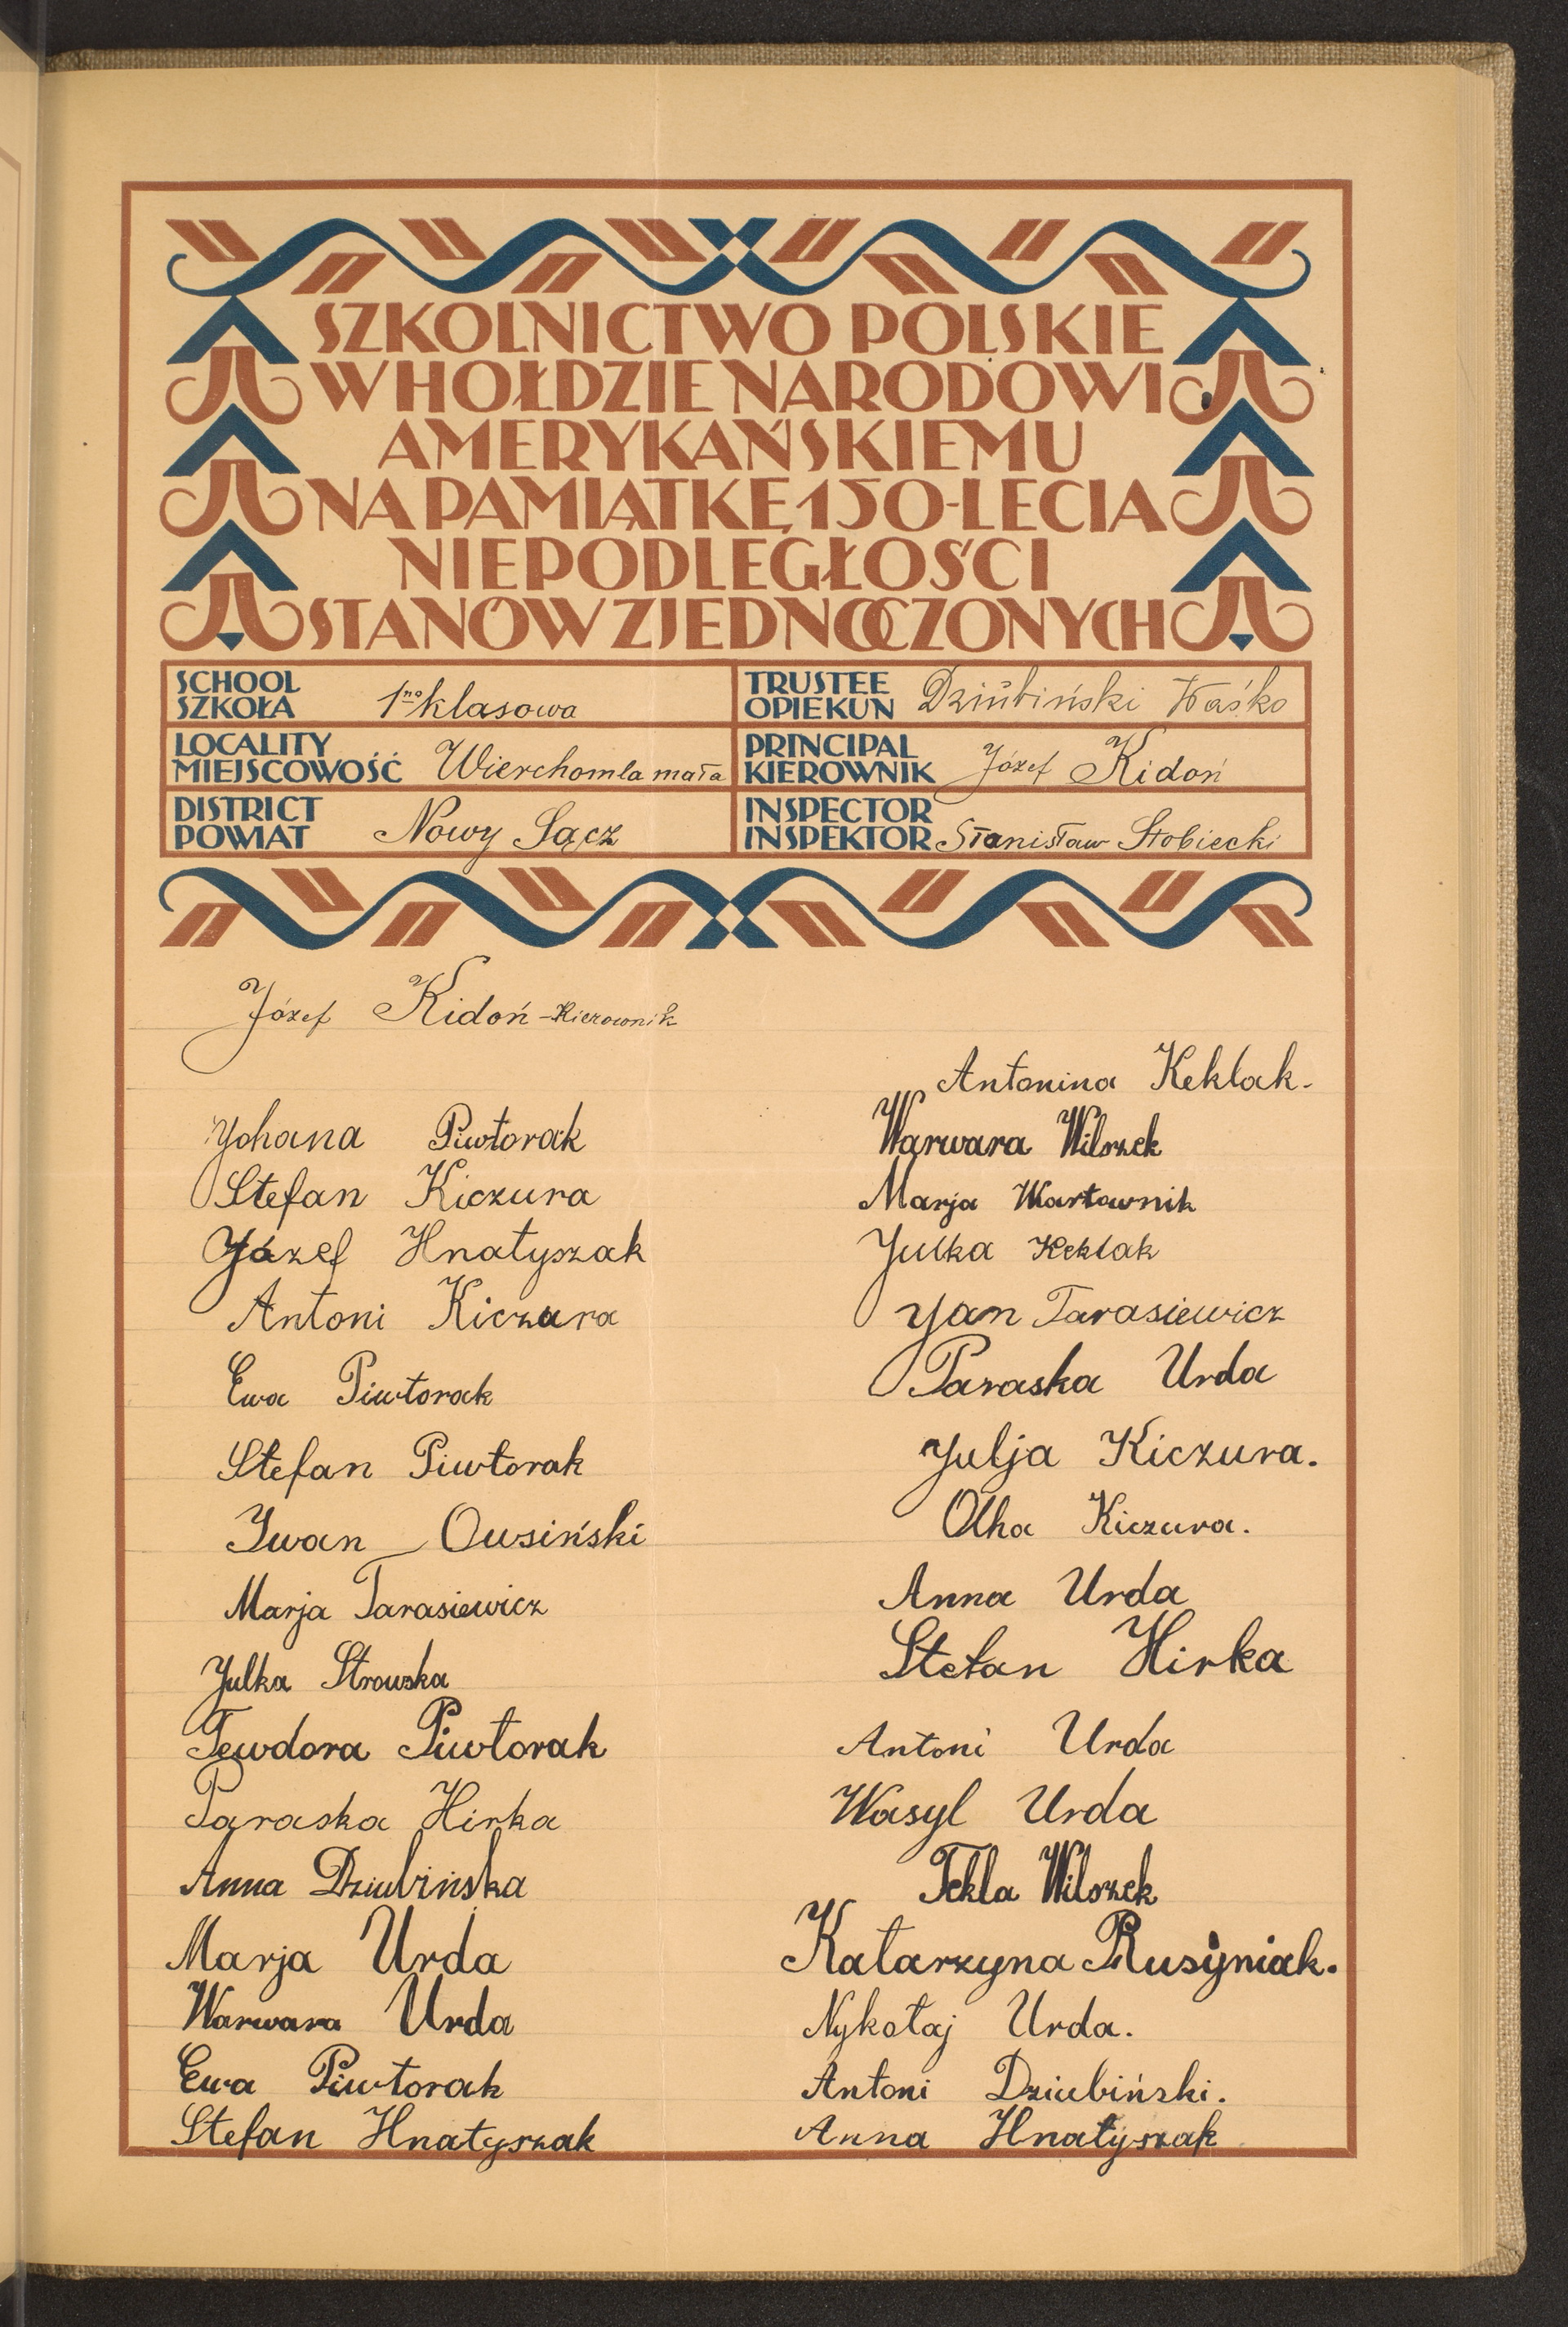 SZKOLNICTWO POLSKIE
W HOŁDZIE NARODOWI
AMERYKAŃSKIEMU
NA PAMIĄTKĘ 150-LECIA
NIEPODLEGŁOŚCI
STANÓW ZJEDNOCZONYCH
SCHOOL
SZKOŁA 1no klasowa
TRUSTEE
OPIEKUN Dziubiński Waśko
LOCALITY
MIEJSCOWOŚĆ Wierchomla mała
PRINCIPAL
KIEROWNIK Józef Kidoń
DISTRICT
POWIAT Nowy Sącz
INSPECTOR
INSPEKTOR Stanisław Stobiecki
Józef Kidoń - Kierownik
Yohana Piwtorak
Stefan Kiczura
Józef Hnatyszak
Antoni Kiczura
Ewa Piwtorak
Stefan Piwtorak
Iwan Owsiński
Marja Tarasiewicz
Julka Strouska
Tewdora Piwtorak
Paraska Hirka
Anna Dziubińska
Marja Urda
Warwara Urda
Ewa Piwtorak
Stefan Hnatyszak
Antonina Keklak.
Warwara Wilszek
Marja Wartownik
Julka Keklak
Jan Tarasiewicz
Paraska Urda
Julja Kiczura.
Olha Kiczura.
Anna Urda
Stefan Hirka
Antoni Urda
Wasyl Urda
Tekla Wilszek
Katarzyna Rusyniak.
Nykołaj Urda.
Antoni Dziubiński.
Anna Hnatyszak